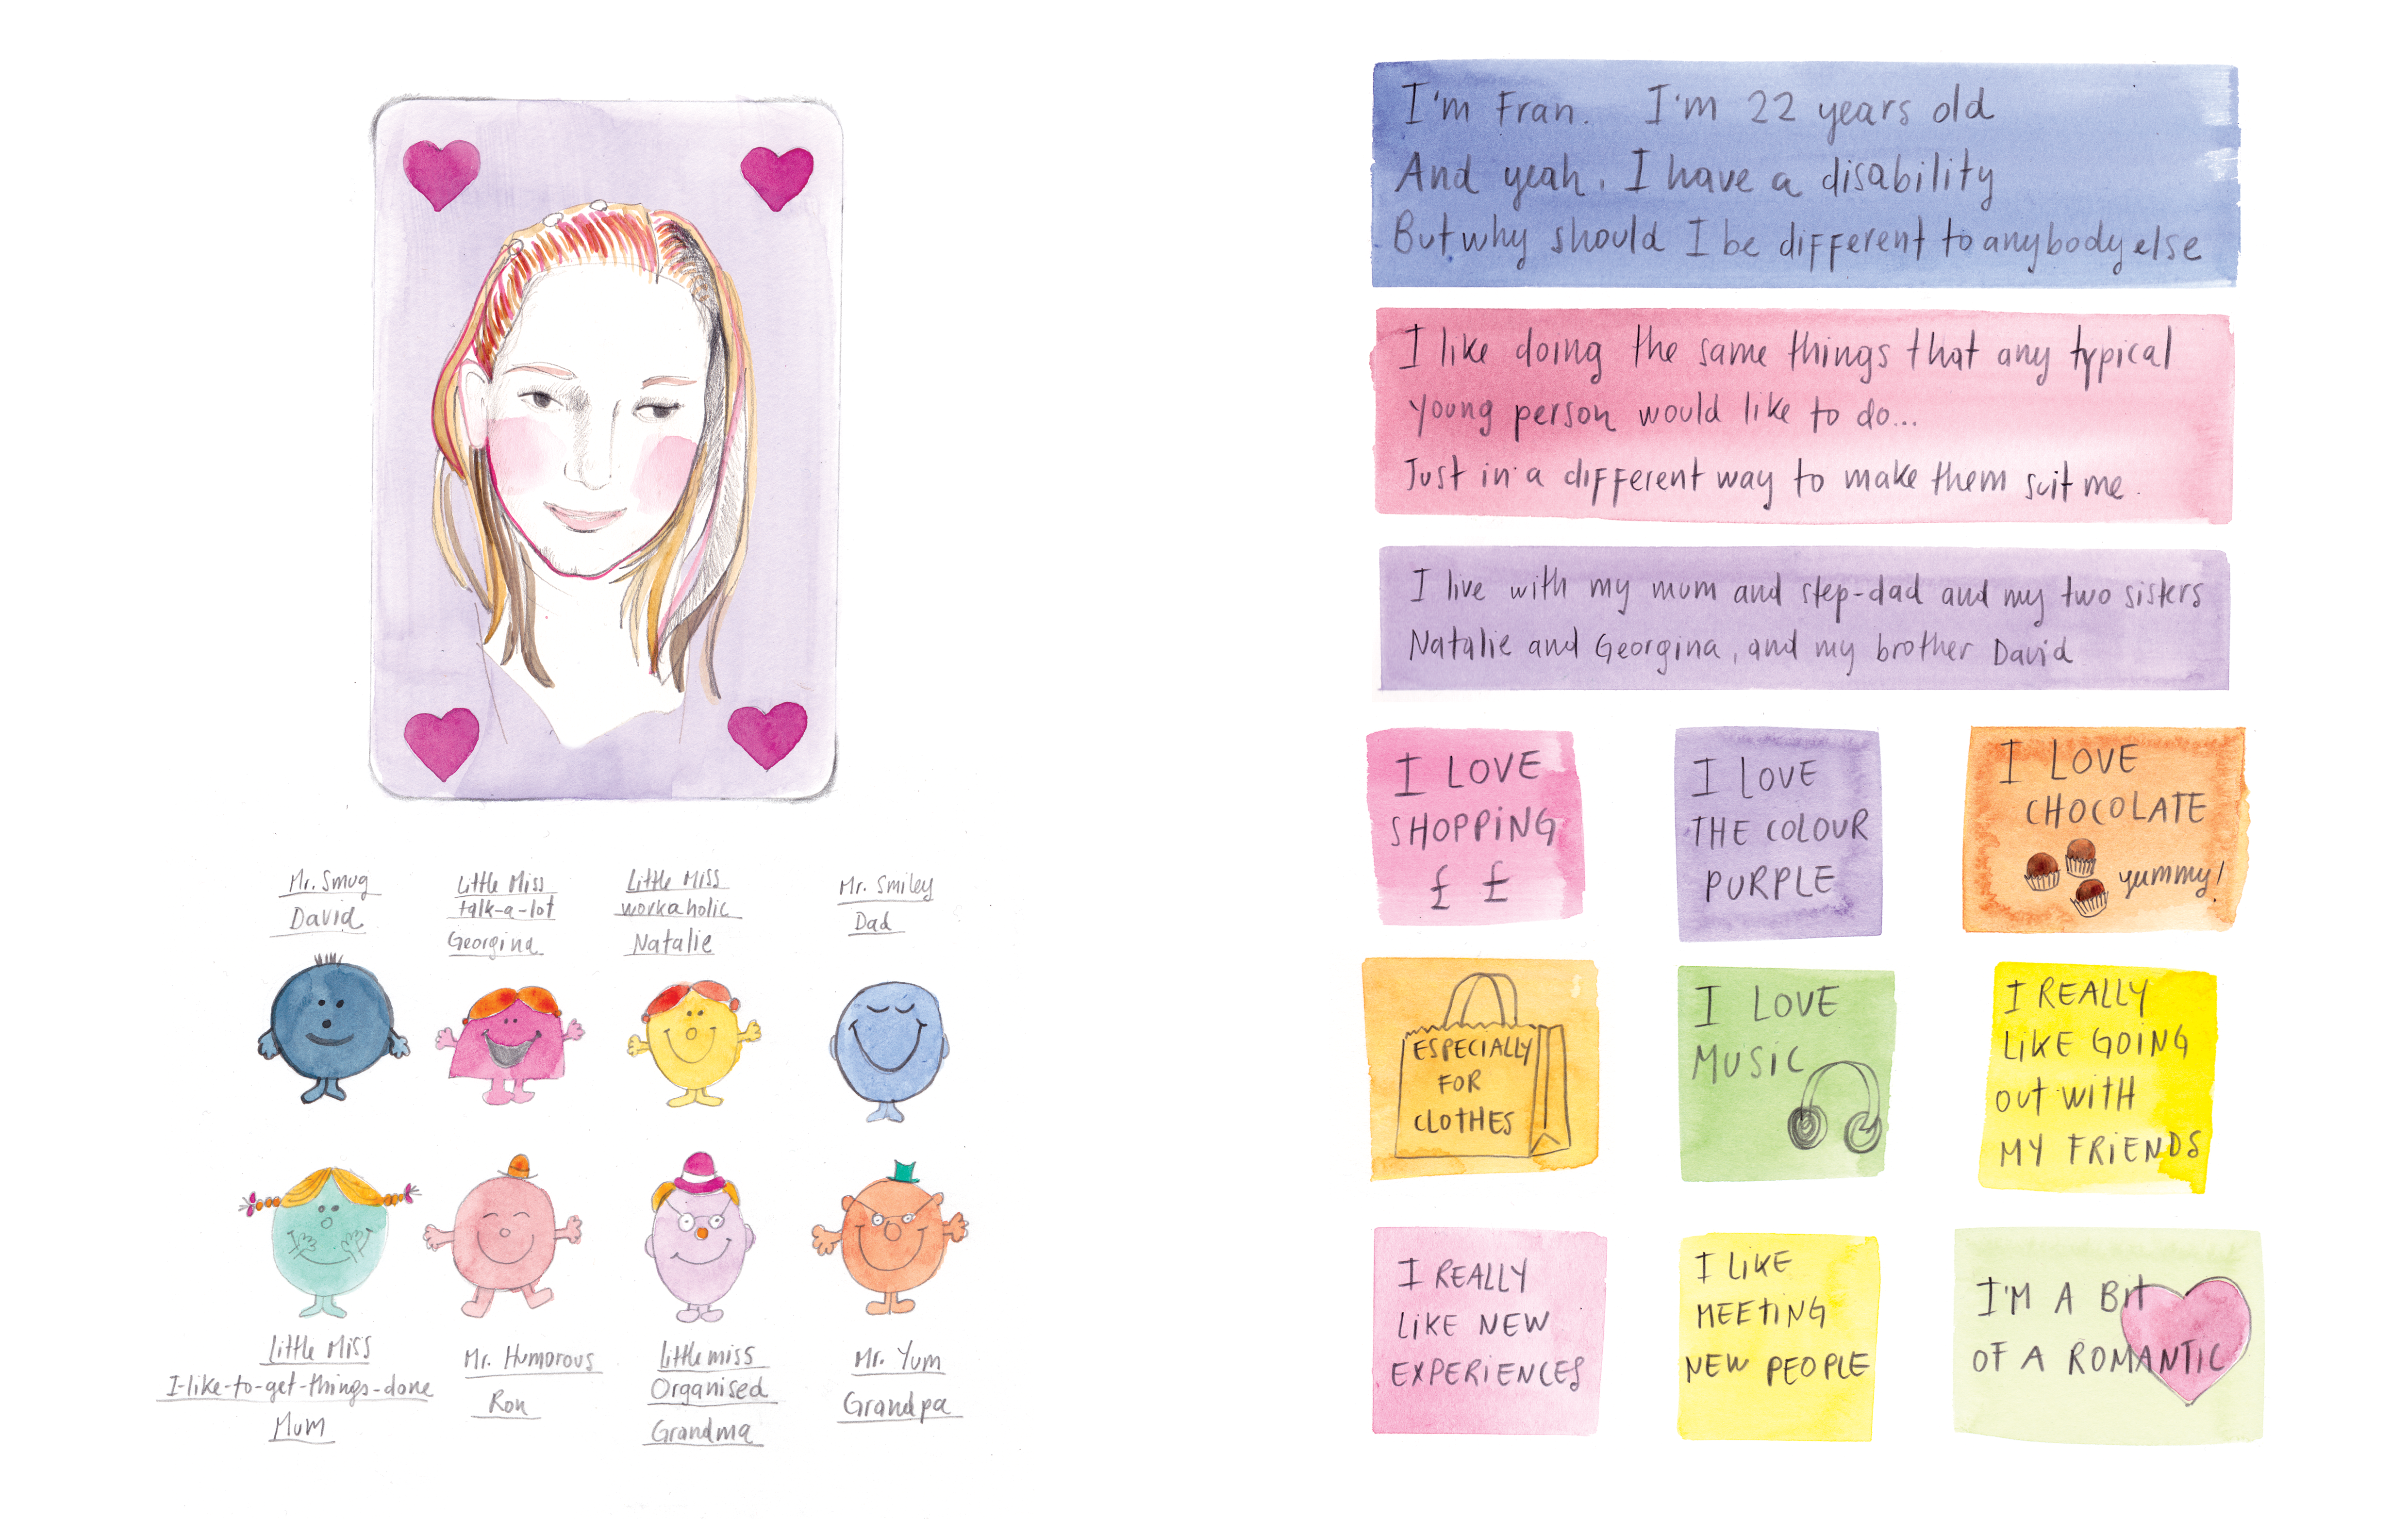 Mr. Smug
David
Little Miss
talk-a-lot
Georgina
Little Miss
workaholic
Natalie
Mr. Smiley
Dad
Little Miss
I-like-to-get-things-done
Mum
Mr. Humorous
Ron
Little miss
Organised
Grandma
Mr. Yum
Grandpa
I'm Fran. I'm 22 years old
And yeah, I have a disability
But why should I be different to anybody else
I like doing the same things that any typical
young person would like to do...
Just in a different way to make them suit me.
I live with my mum and step-dad and my two sisters
Natalie and Georgina, and my brother David
I LOVE
SHOPPING
£ £
I LOVE
THE COLOUR
PURPLE
I LOVE
CHOCOLATE
yummy!
ESPECIALLY
FOR
CLOTHES
I LOVE
MUSIC
I REALLY
LIKE GOING
OUT WITH
MY FRIENDS
I REALLY
LIKE NEW
EXPERIENCES
I LIKE
MEETING
NEW PEOPLE
I'M A BIT
OF A ROMANTIC